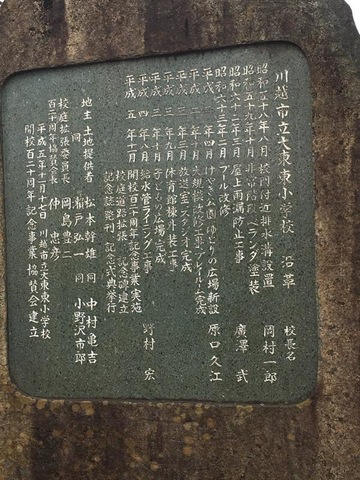 川越市立大東東小学校 沿革 校長名
昭和五十八年八月 校門付近排水溝設置 岡村一郎
昭和五十九年十月 非常階段ベランダ塗装
昭和六十二年三月 屋上雨漏防止工事 廣澤 武
昭和六十三年二月 プール改修
平成 一年四月 けやき園ゆとりの広場新設 原口久江
平成 二年三月 大規模改修工事 プレイルーム完成
平成 三年三月 放送室(スタジオ)完成
平成 三年九月 体育館操外装工事
平成 三年十月 子どもの広場完成
平成 四年八月 給水管ライニング工事 野村 宏
平成 五年十一月 開校百二十周年記念事業実施
校庭道路拡張・記念碑建立
記念誌発刊・記念式典挙行
地主 土地提供者 松本幹雄 同 中村亀吉
同 瀬戸弘一 同 小野沢市郎
校庭拡張委員長 岡島豊二
百二十周年協賛会長 仲 忠彦
平成五年十一月十七日 川越市立大東東小学校
開校百二十周年記念事業協賛会建立